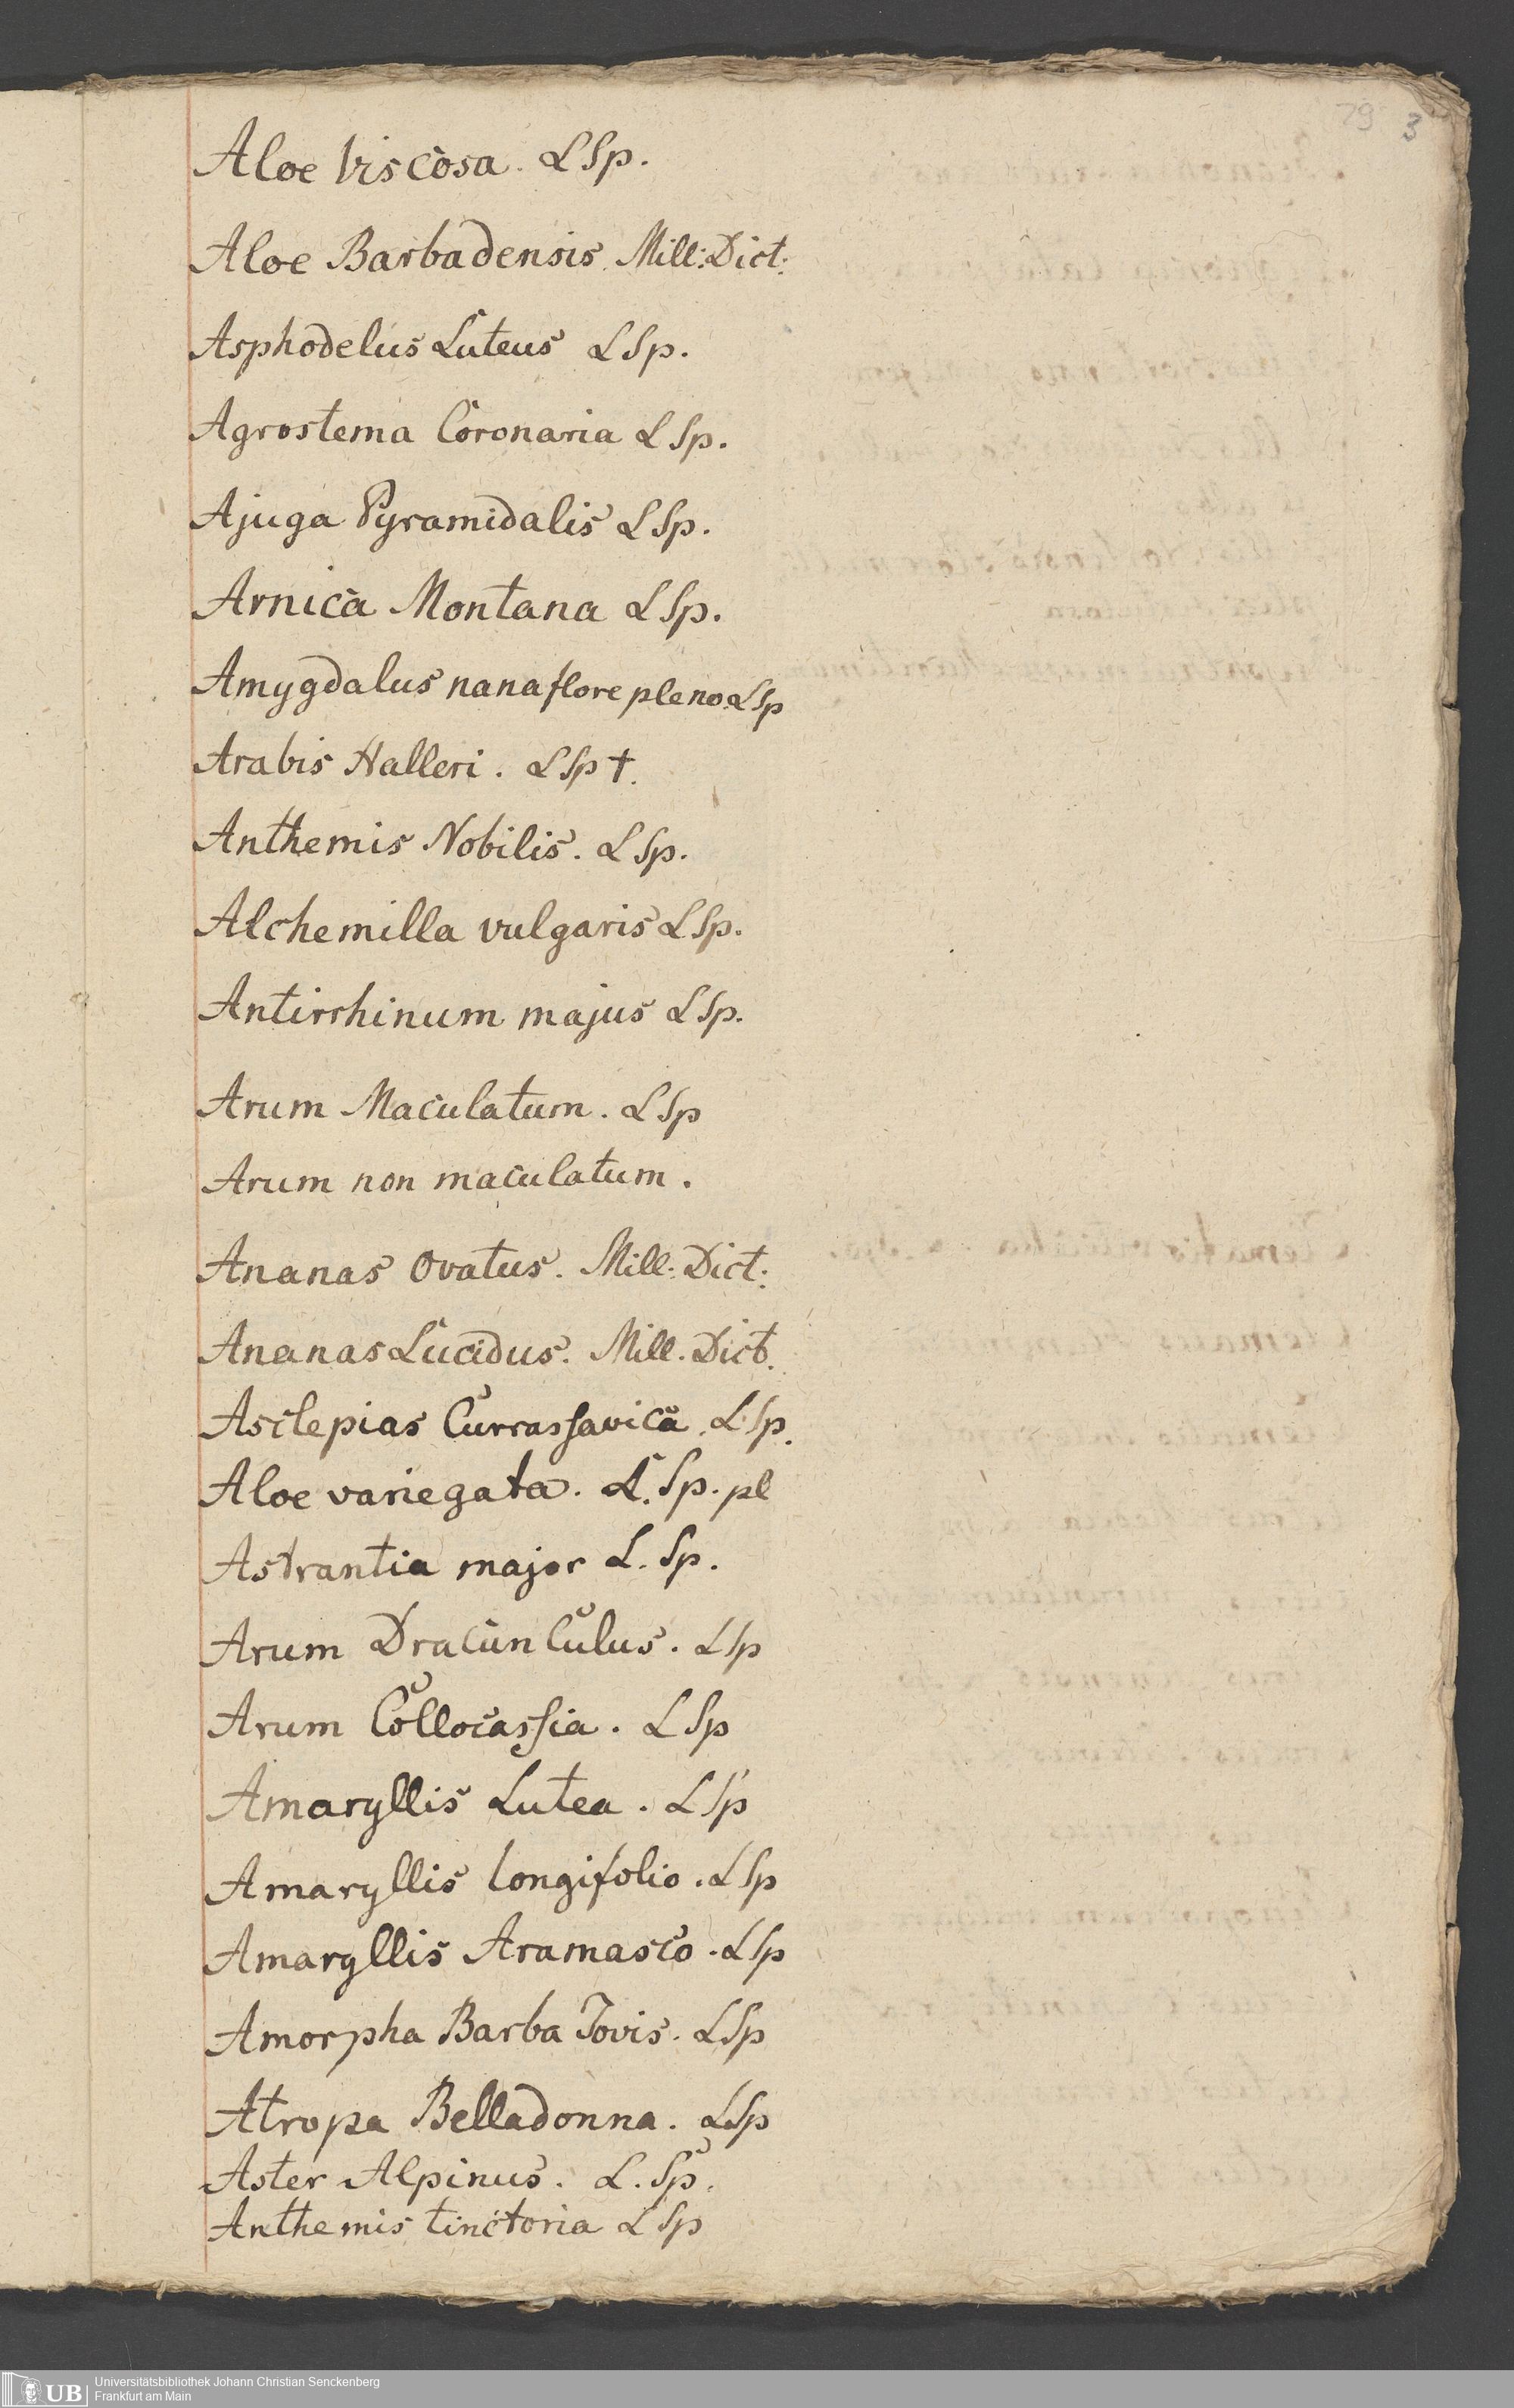 79 3
Aloe Viscosa. L Sp.
Aloe Barbadensis. Mill: Dict:
Asphodelus Luteus L Sp.
Agrostema Coronaria L Sp.
Ajuga Pyramidalis L Sp.
Arnica Montana L Sp.
Amygdalus nana flore pleno. L Sp
Arabis Halleri. L Sp †.
Anthemis Nobilis. L Sp.
Alchemilla vulgaris L Sp.
Antirrhinum majus L Sp.
Arum Maculatum. L Sp
Arum non maculatum.
Ananas Ovatus. Mill: Dict:
Ananas Lucidus. Mill. Dict.
Asclepias Currassavica. L. Sp.
Aloe variegata. L. Sp. pl
Astrantia major L. Sp.
Arum Dracunculus. L Sp
Arum Collocassia. L Sp
Amaryllis Lutea. L Sp
Amaryllis longifolio. L Sp
Amaryllis Aramasco. L Sp
Amorpha Barba Jovis. L Sp
Atropa Belladonna. L Sp
Aster Alpinus. L. Sp.
Anthemis tinctoria L Sp
UB Universitätsbibliothek Johann Christian Senckenberg
Frankfurt am Main